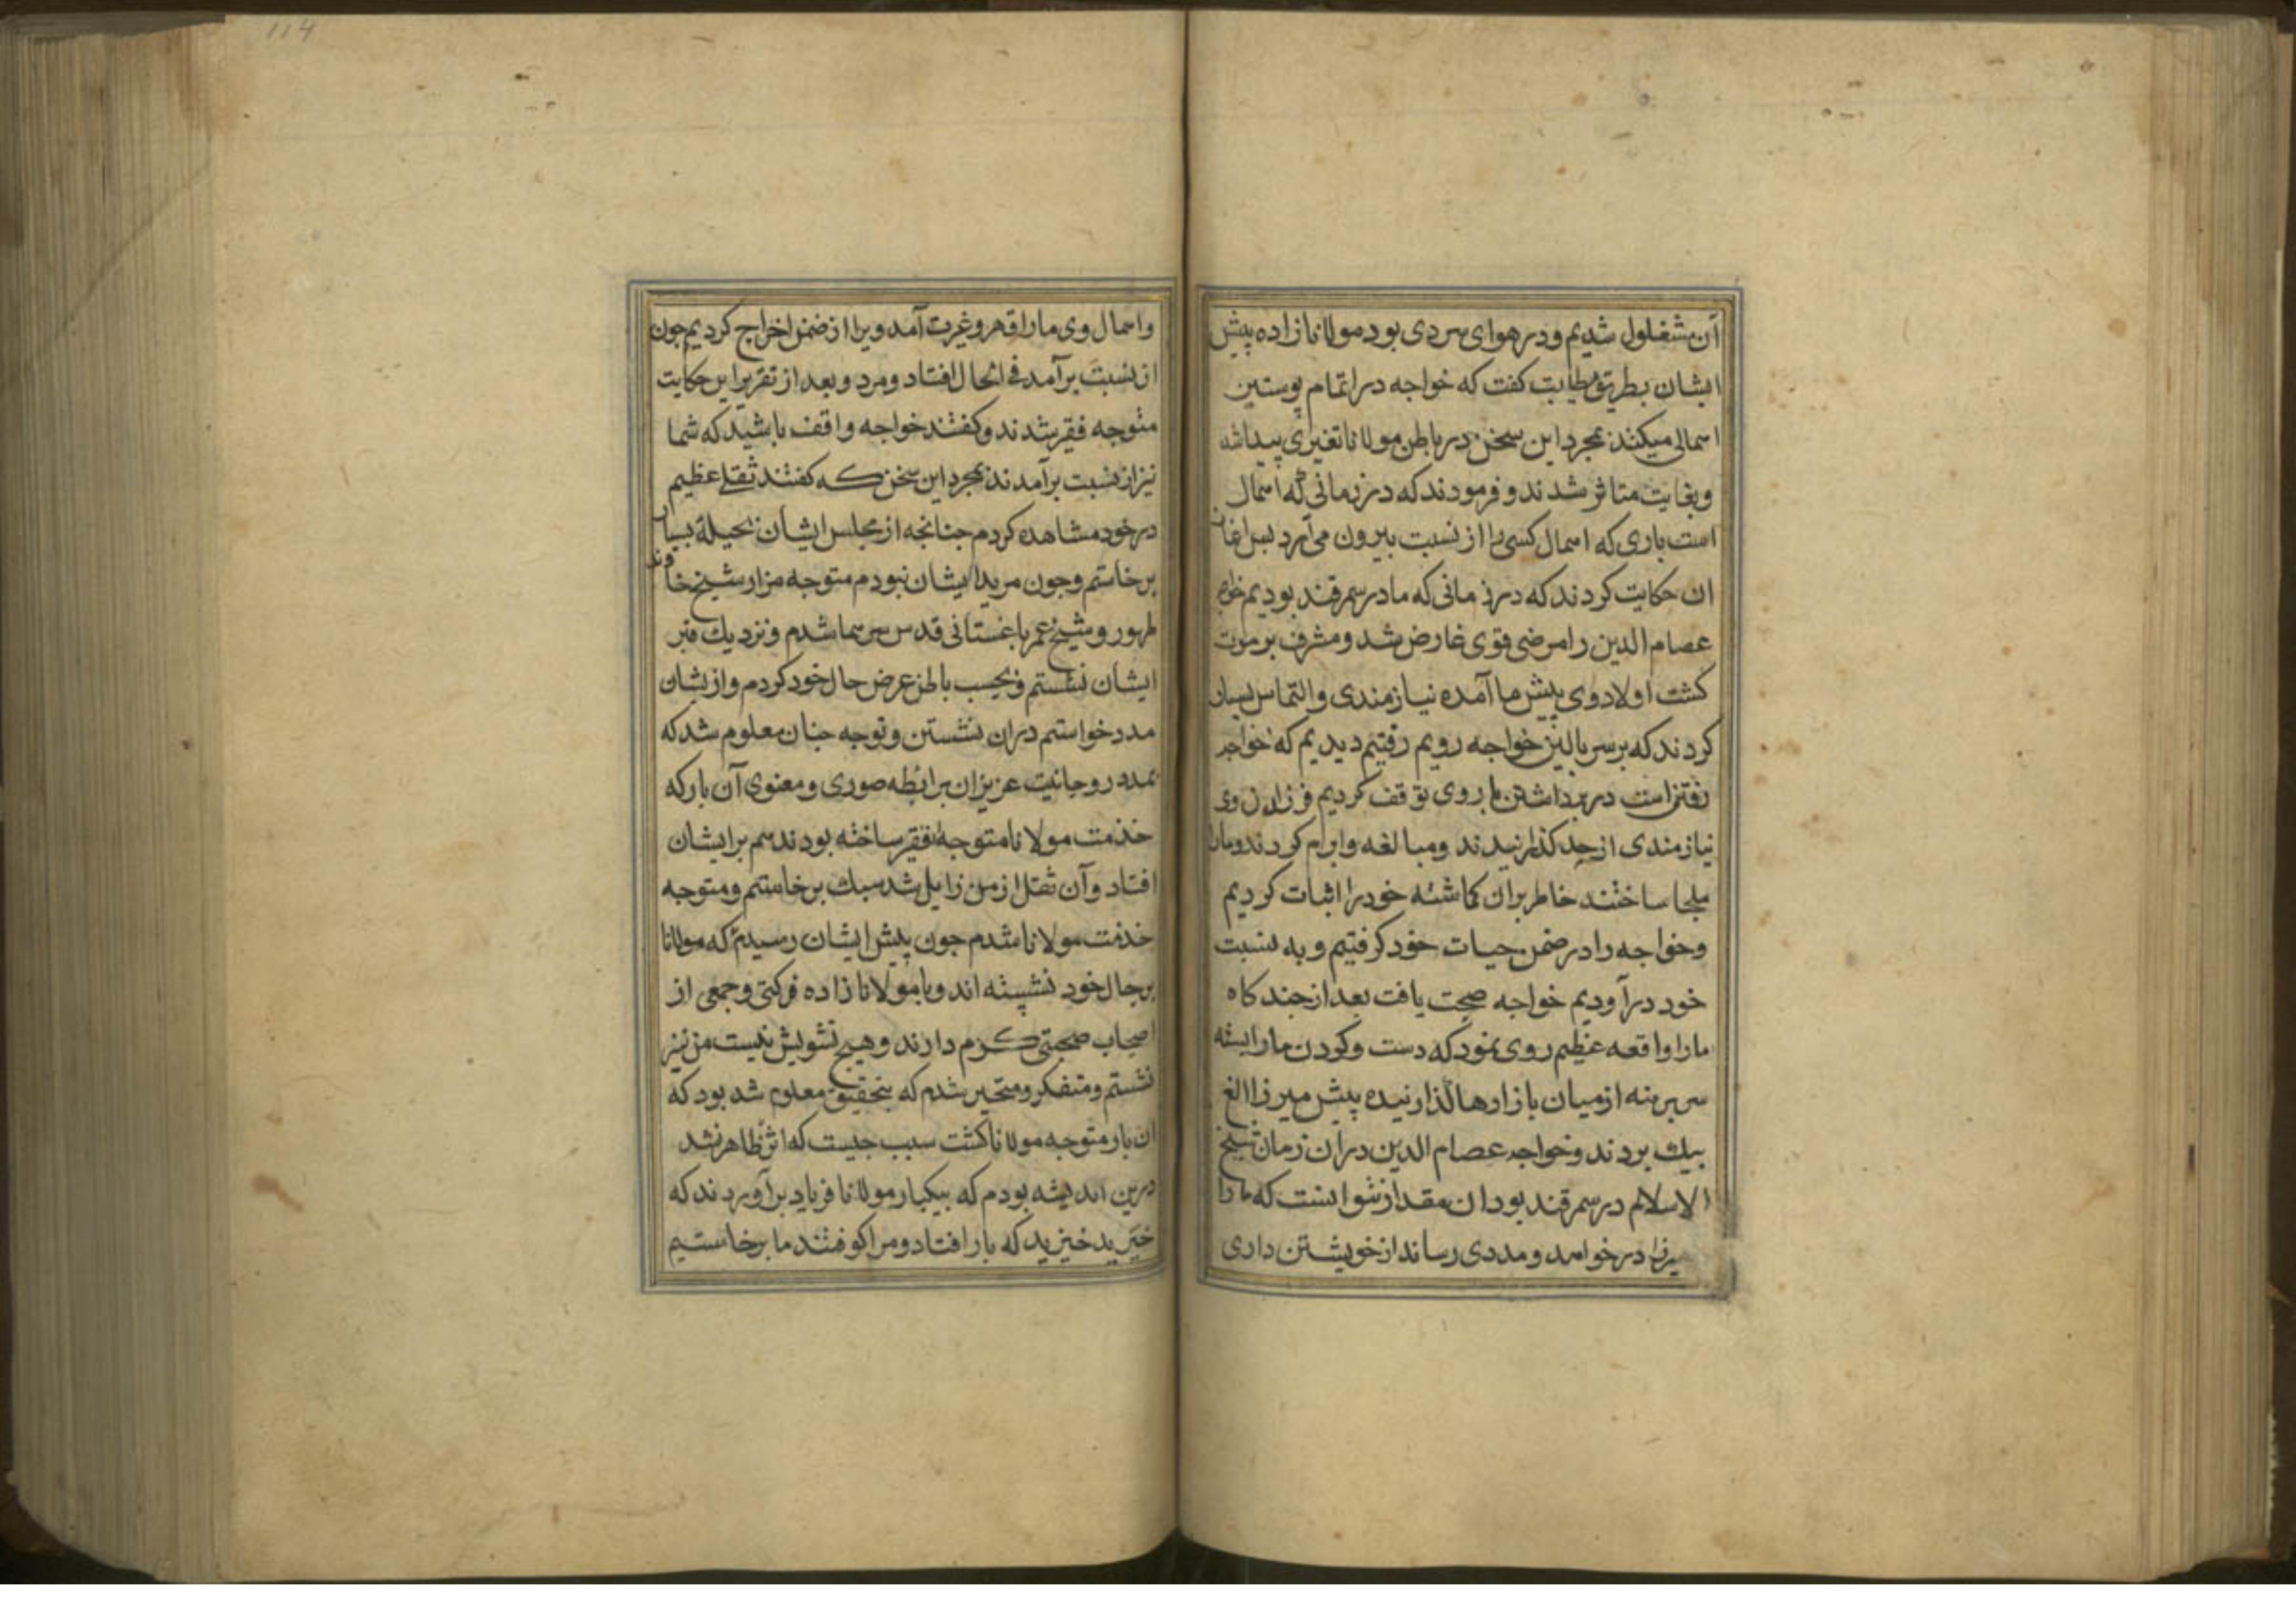 آن مشغلول شدیم و در هوای سردی بود مولانا زاده پیش
ایشان بطریق مطایبت کفت که خواجه در اتمام پوستین
اسمالی میکنند بمجرد این سخن در باطن مولانا تغیری پیدا شد
وبغایت متاثر شدند و فرمودند که در زمانی که اسمال
است باری که اسمال کسی را از نسبت بیرون می آرد پس اغاز
ان حکایت کردند که در زمانی که ما در سمرقند بودیم خواجه
عصام الدین را مرضی قوی عارض شد و مشرف بر موت
کشت اولاد وی پیش ما آمده نیازمندی و التماس بسیار
کردند که بر سر بالین خواجه رویم رفتیم دیدیم که خواجه
رفتنی است در برداشتن بار وی توقف کردیم فرزندان وی
نیازمندی از حد کذرانیدند ومبالغه وابرام کردند ومارا
ملجا ساختند خاطر بران کماشته خود را اثبات کردیم
وخواجه را در ضمن حیات خود کرفتیم و به نسبت
خود درآوردیم خواجه صحت یافت بعد از چند کاه
مارا واقعه عظیم روی نمود که دست وکردن مارا بسته
سر برهنه از میان بازارها کذارنیده پیش میرزا الغ
بیك بردند وخواجه عصام الدین دران زمان شیخ
الاسلام در سمرقند بود ان مقدار نتوانست که مارا
میرزا درخواهد و مددی رساند از خویشتن داری
واسمال وی مارا قهر و غیرت آمد ویرا از ضمن اخراج کردیم جون
از نسبت برآمد فی الحال افتاد و مرد و بعد از تقریر این حکایت
متوجه فقیر شدند وکفتند خواجه واقف باشید که شما
نیز از نسبت برآمدند بمجرد این سخن که کفتند ثقلی عظیم
در خود مشاهده کردم جنانجه از مجلس ایشان بحیلۀ بسیار
برخاستم وجون مرید ایشان نبودم متوجه مزار شیخ خاوند
طهور و شیخ عمر باغستانی قدس سرهما شدم و نزدیك قبر
ایشان نشستم و بحسب باطن عرض حال خود کردم و از یشان
مدد خواستم دران نشستن و توجه جنان معلوم شد که
بمدد روحانیت عزیزان برابطه صوری و معنوی آن بار که
خدمت مولانا متوجه فقیر ساخته بودند هم بر ایشان
افتاد و آن ثقل از من زایل شد سبك برخاستم و متوجه
خدمت مولانا شدم جون پیش ایشان رسیدم که مولانا
بر حال خود نشسته اند و با مولانا زاده فرکتی و جمعی از
اصحاب صحبتی کرم دارند و هیچ تشویش نیست من نیز
نشستم و متفکر و متحیر شدم که بتحقیق معلوم شد بود که
ان بار متوجه مولانا کشت سبب جیست که اثر ظاهر نشد
درین اندیشه بودم که بیکبار مولانا فریاد برآوردند که
خیزید خیزید که بار افتاد و مرا کوفتند ما برخاستیم